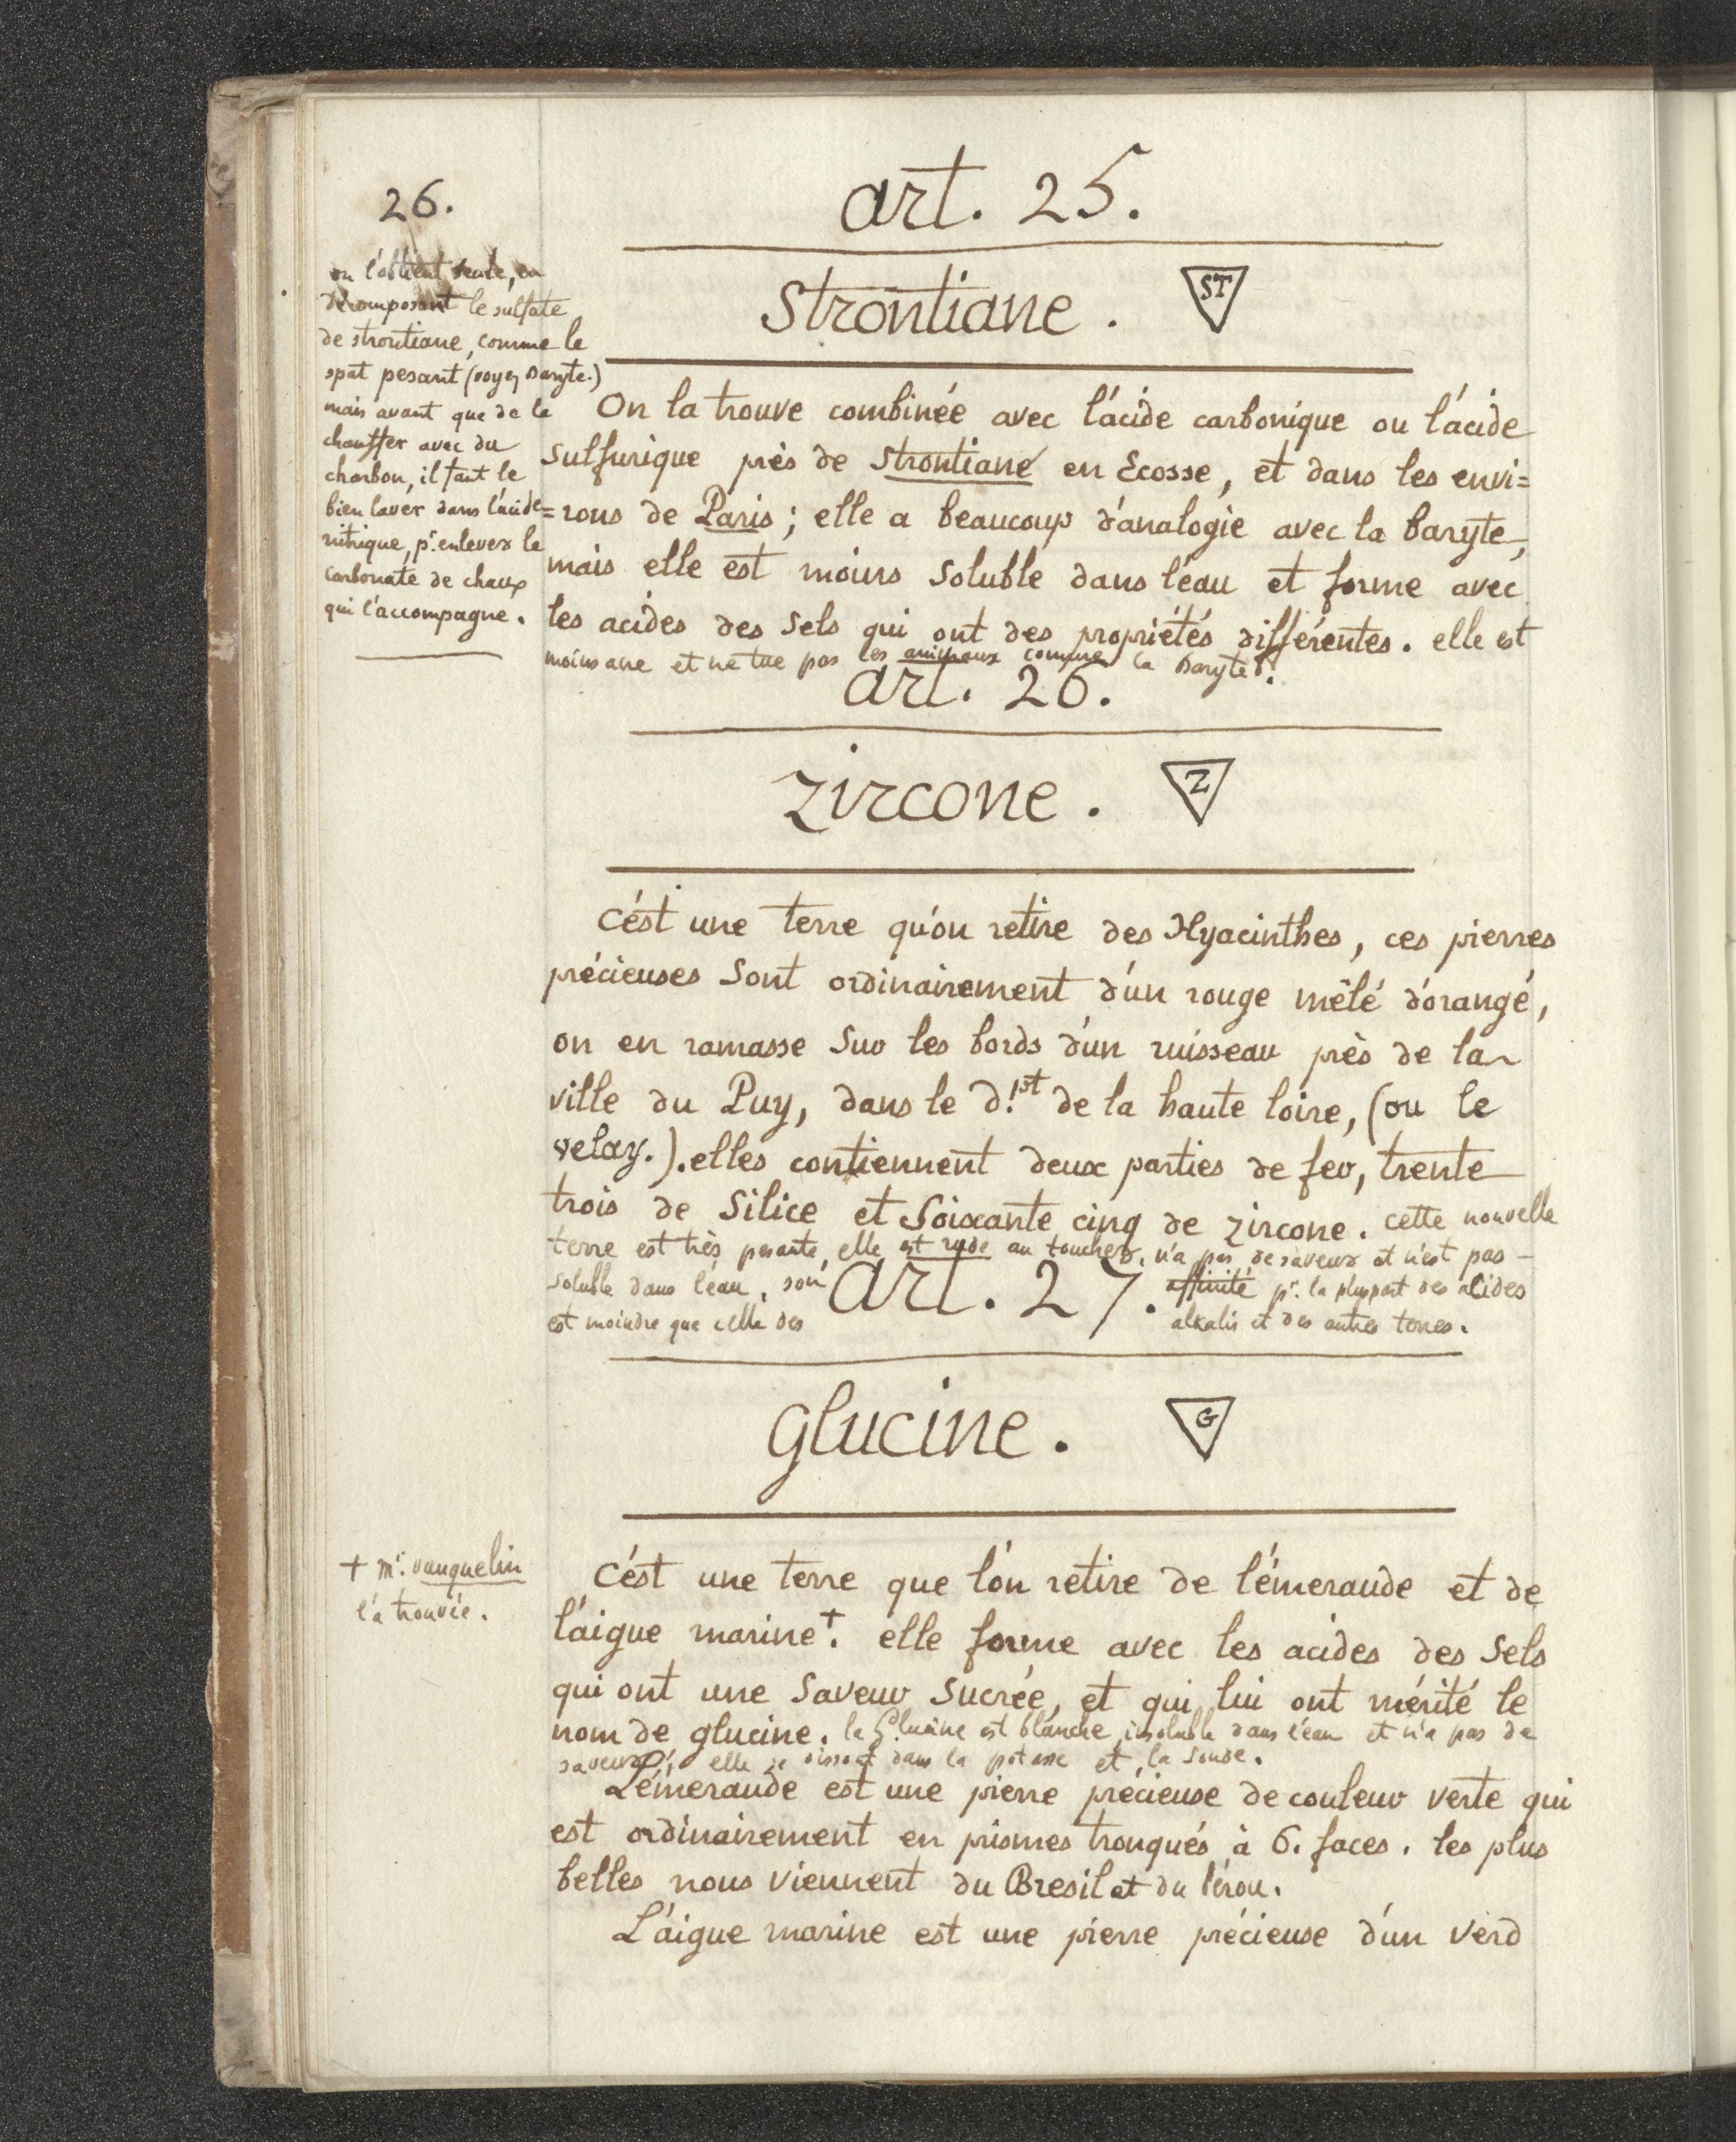 26.
art. 25.
Strontiane. ST
on l'obtient seule, en
décomposant le sulfate
de strontiane, comme le
spat pesant (voyez Baryte.)
mais avant que de le
chauffer avec du
charbon, il faut le
bien laver dans l'acide
nitrique, pr. enlever le
carbonate de chaux
qui l'accompagne.
On la trouve combinée avec l'acide carbonique ou l'acide
sulfurique près de Strontiane en Ecosse, et dans les envi=
=rons de Paris; elle a beaucoup d'analogie avec la baryte,
mais elle est moins soluble dans l'eau et forme avec
les acides des sels qui ont des propriétés différentes. elle est
moins acre et ne tue pas les animaux comme la Baryte.
art. 26.
Zircone. Z
C'est une terre qu'on retire des Hyacinthes, ces pierres
précieuses sont ordinairement d'un rouge mêlé d'orangé,
on en ramasse sur les bords d'un ruisseau près de la
ville du Puy, dans le d!pt de la haute loire, (ou le
velay.). elles contiennent deux parties de fer, trente
trois de Silice et soixante cinq de zircone. cette nouvelle
terre est très pesante, elle est rude au toucher, n'a pas de saveur et n'est pas
soluble dans l'eau, son affinité pr. la pluspart des acides
est moindre que celle des alkalis et des autres terres.
art. 27.
Glucine. G
C'est une terre que l'on retire de l'émeraude et de
l'aigue marine+. elle forme avec les acides des sels
qui ont une saveur sucrée, et qui lui ont mérité le
nom de glucine. la Glucine est blanche, insoluble dans l'eau et n'a pas de
saveur; elle se dissout dans la potasse et la soude.
+ mr. vauquelin
l'a trouvée.
L'émeraude est une pierre précieuse de couleur verte qui
est ordinairement en prismes tronqués à 6. faces. les plus
belles nous viennent du Bresil et du Pérou.
L'aigue marine est une pierre précieuse d'un verd